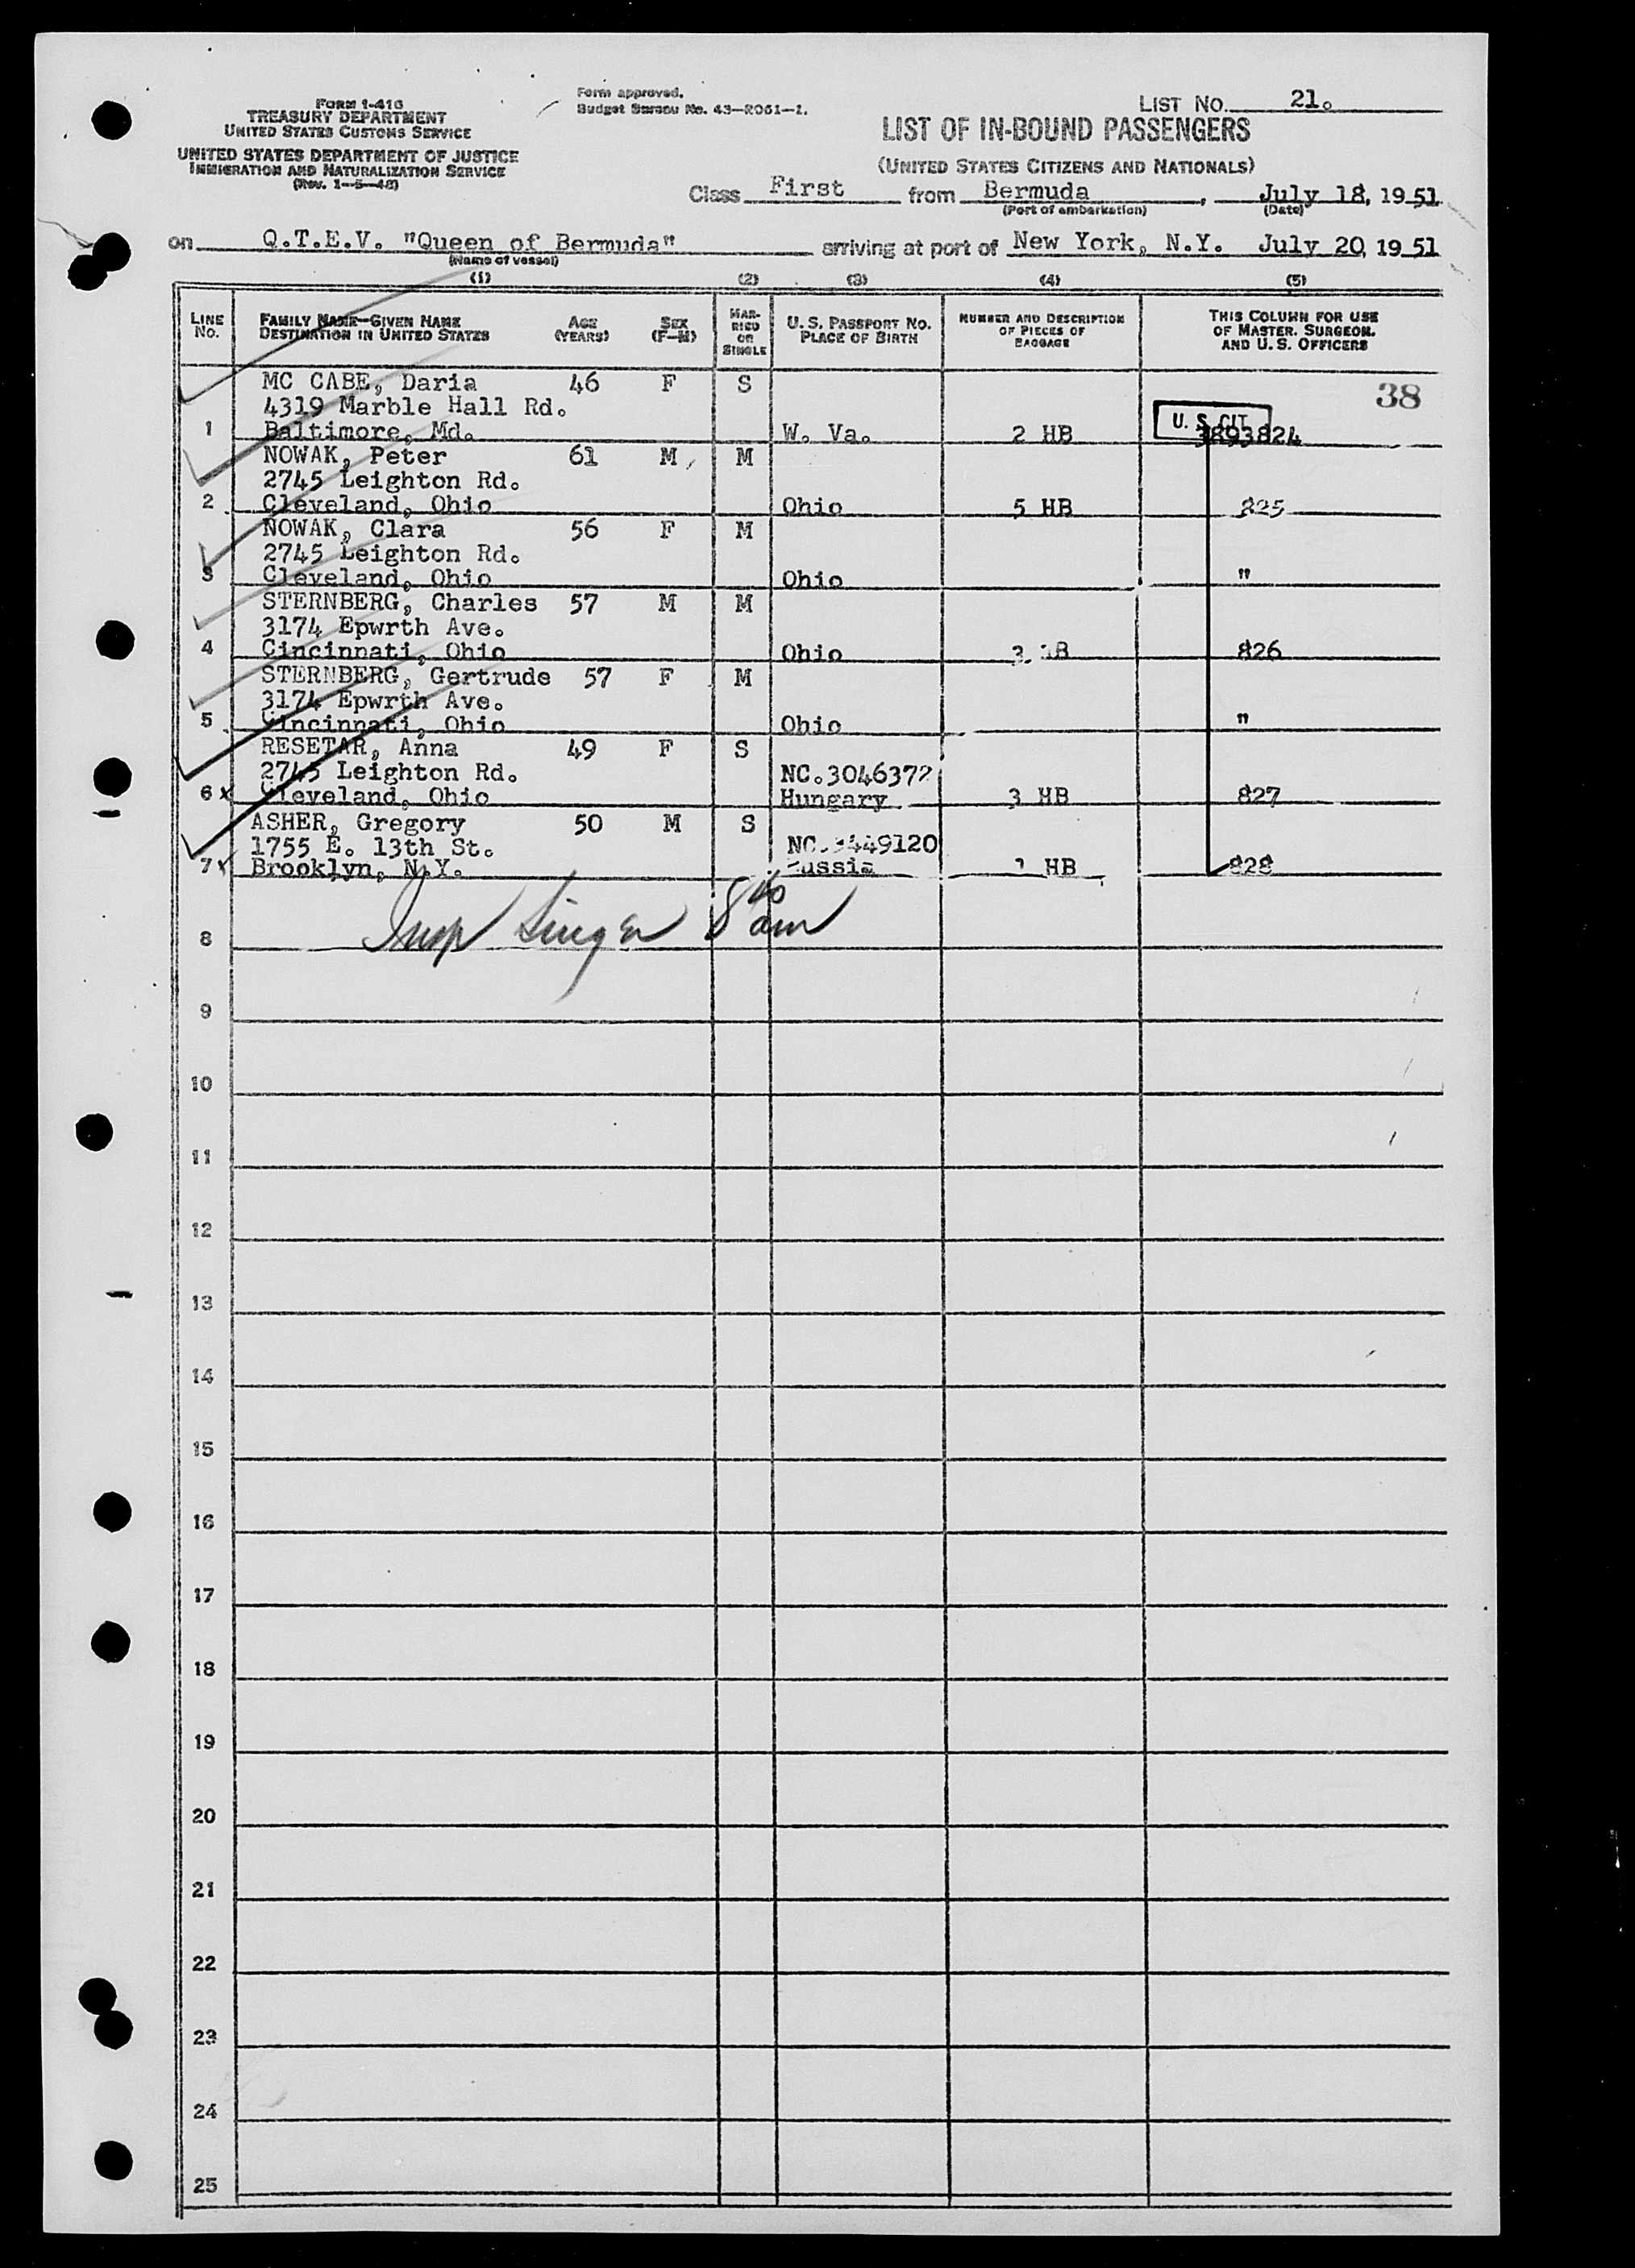 FORM I-416
TREASURY DEPARTMENT
UNITED STATES CUSTOMS SERVICE
UNITED STATES DEPARTMENT OF JUSTICE
IMMIGRATION AND NATURALIZATION SERVICE
(Rev. 1-5-48)
Form approved.
Budget Bureau No. 43-R061-1.
LIST NO. 21.
LIST OF IN-BOUND PASSENGERS
(UNITED STATES CITIZENS AND NATIONALS)
Class First from Bermuda, July 18, 1951
(Port of embarkation) (Date)
on Q.T.E.V. "Queen of Bermuda" arriving at port of New York, N.Y. July 20, 1951
(Name of vessel)
(1) (2) (3) (4) (5)
LINE NO. FAMILY NAME—GIVEN NAME DESTINATION IN UNITED STATES AGE (YEARS) SEX (F-M) MARRIED OR SINGLE U. S. PASSPORT NO. PLACE OF BIRTH NUMBER AND DESCRIPTION OF PIECES OF BAGGAGE THIS COLUMN FOR USE OF MASTER, SURGEON, AND U. S. OFFICERS
MC CABE, Daria 46 F S 38
4319 Marble Hall Rd. U. S. CIT
1 Baltimore, Md. W. Va. 2 HB 3893824
NOWAK, Peter 61 M M
2745 Leighton Rd.
2 Cleveland, Ohio Ohio 5 HB 825
NOWAK, Clara 56 F M
2745 Leighton Rd.
3 Cleveland, Ohio Ohio "
STERNBERG, Charles 57 M M
3174 Epwrth Ave.
4 Cincinnati, Ohio Ohio 3 826
STERNBERG, Gertrude 57 F M
3174 Epwrth Ave.
5 Cincinnati, Ohio Ohio "
RESETAR, Anna 49 F S
2745 Leighton Rd. NC.3046372
6 x Cleveland, Ohio Hungary 3 HB 827
ASHER, Gregory 50 M S
1755 E. 13th St.
7 x Brooklyn, N.Y. Russia HB 828
Insp Singer 8 40 am
8
9
10
11
12
13
14
15
16
17
18
19
20
21
22
23
24
25